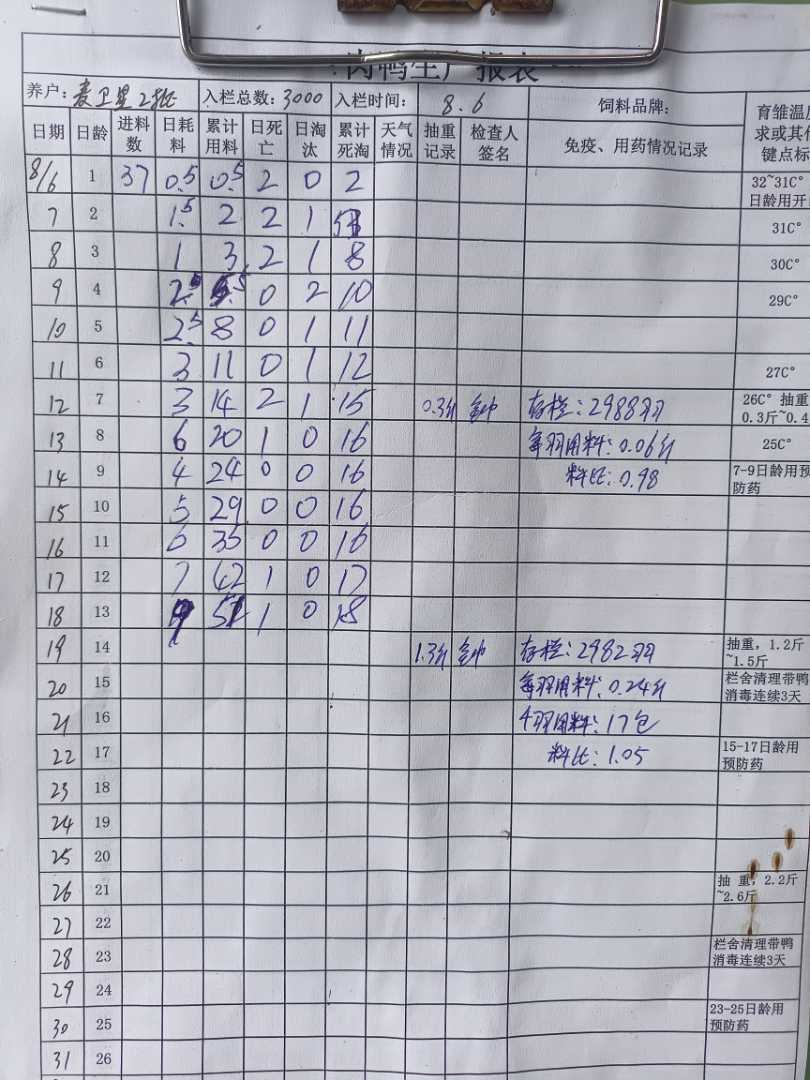 肉鸭生产报表
养户：麦卫星2批 入栏总数：3000 入栏时间：8.6 饲料品牌：
日期 日龄 进料数 日耗料 累计用料 日死亡 日淘汰 累计死淘 天气情况 抽重记录 检查人签名 免疫、用药情况记录
8/6 1 37 0.5 0.5 2 0 2 32~31C°
日龄用开
7 2 1.5 2 2 1 31C°
8 3 1 3 2 1 8 30C°
9 4 2.5 5.5 0 2 10 29C°
10 5 2.5 8 0 1 11
11 6 3 11 0 1 12 27C°
12 7 3 14 2 1 15 0.3斤 存栏：2988羽 26C° 抽重
0.3斤~0.4
13 8 6 20 1 0 16 每羽用料：0.06斤 25C°
14 9 4 24 0 0 16 料比：0.98 7-9日龄用预
防药
15 10 5 29 0 0 16
16 11 6 35 0 0 16
17 12 7 42 1 0 17
18 13 9 51 1 0 18
19 14 1.3斤 存栏：2982羽 抽重，1.2斤
~1.5斤
20 15 每羽用料：0.24斤 栏舍清理带鸭
消毒连续3天
21 16 千羽用料：17包
22 17 料比：1.05 15-17日龄用
预防药
23 18
24 19
25 20
26 21 抽 重，2.2斤
~2.6斤
27 22
28 23 栏舍清理带鸭
消毒连续3天
29 24
30 25 23-25日龄用
预防药
31 26